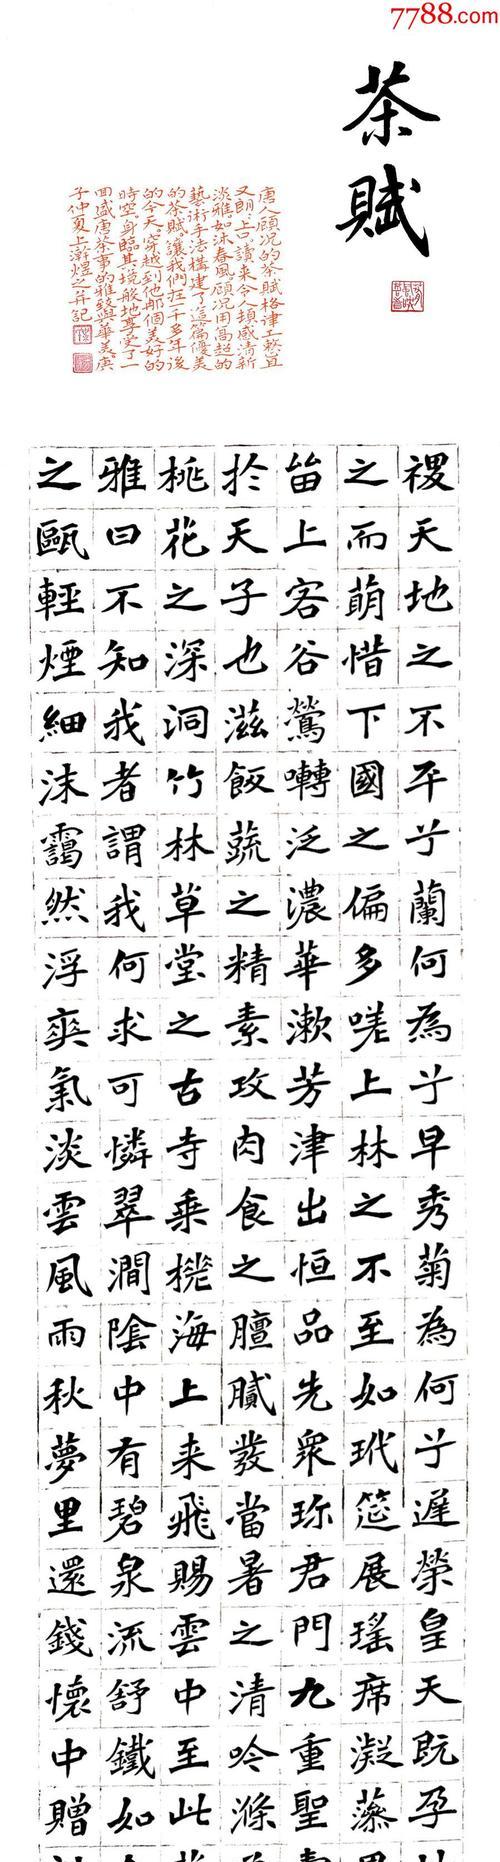 7788.com
茶賦
唐人顧况的茶賦格律工整且
又朗朗上口讀来令人頓感清新
淡雅如沐春風顧况用高超的
藝術手法構建了這篇優美
的茶賦讓我們在千多年後
的今天穿越到他那個美好的
時空身臨其境般地享受了一
回盛唐茶事的雅致與華美庚
子仲夏上澣煜之并記
禝天地之不平兮蘭何為兮早秀菊為何兮遅榮皇天既孕
之而萌惜下國之偏多嗟上林之不至如玳筵展瑤席凝藻
留上客谷鶯囀泛濃華漱芳津出恒品先衆珎君門九重聖
於天子也滋飯蔬之精素攻肉食之膻膩發當暑之清吟滌
桃花之深洞竹林草堂之古寺乘槎海上来飛賜雲中至此
雅曰不知我者謂我何求可憐翠澗陰中有碧泉流舒鐵如
之甌輕煙細沫靄然浮爽氣淡雲風雨秋夢里還錢懷中贈